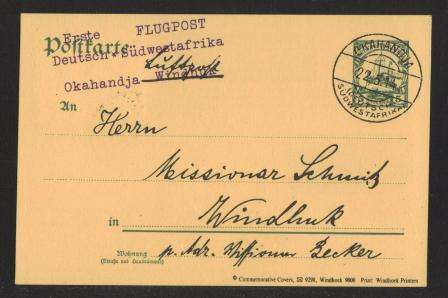 Erste FLUGPOST
Postkarte
Deutsch-Südwestafrika
Luftpost
Okahandja Windhuk
OKAHANDJA
DEUTSCH-
SÜDWESTAFRIKA
An
Herrn
Missionar Schmitz
in Windhuk
Wohnung
(Straße und Hausnummer)
p. Adr. Missionar Becker
© Commemorative Covers, ✉ 9290, Windhoek 9000 Print: Windhoek Printers